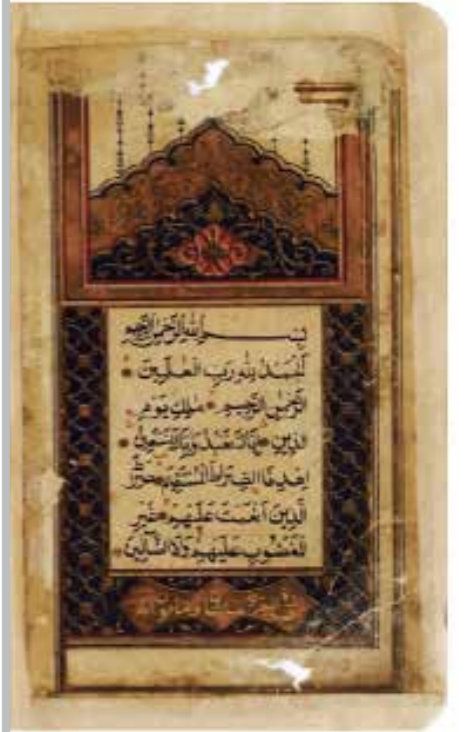 بسم الله الرحمن الرحيم
الحمد لله رب العلمين
الرحمن الرحيم ملك يوم
الدين اياك نعبد واياك نستعين
اهدنا الصراط المستقيم صراط
الذين انعمت عليهم غير
المغضوب عليهم ولا الضالين